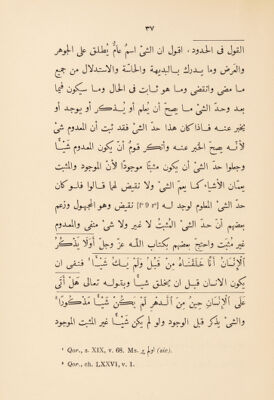 ٣٧
القول فى الحدود، اقول ان الشئ اسم عامّ يُطلق على الجوهر
والعَرض وما يدرك بالبديهة والحاسّة والاستدلال من جميع
ما مضى وانقضى وما هو ثابت فى الحال وما سيكون فيما
بعد وحدّ الشئ ما يصحّ أن يُعلم أو يُذكر أو يوجد أو
يخبر عنه فاذا كان هذا حدّ الشئ فقد ثبت أن المعدوم شئ
لأن يصحّ الخبر عنه وأنكر قوم أنّ يكون المعدوم شَيْـًٔا
وجعلوا حدّ الشئ أن يكون مثبتًا موجودًا لأنّ الموجود والمثبت
يعمّان الأشياء كما يعمّ الشئ ولا نقيض لما قالوا فلو كان
حدّ الشئ المعلوم لوجد له [f° 9 r°] نقيض وهو المجهول وزعم
بعضهم أنّ حدّ الشئ المُثبتُ لا غير ولا شئ منفى والمعدوم
غير مُثبَت واحتجّ بعضهم بكتاب اللّه عزّ وجلّ أَوَلَا يَذْكُرُ
ٱلْإِنْسَانُ أَنَّا خَلَقْنَاهُ مِنْ قَبْلُ وَلَمْ يَكُ شَيْـًٔا ¹ فنفى ان
يكون الانسان قبل ان يخلق شيئًا وبقوله تعالى هَلْ أَتَىٰ
عَلَى ٱلْإِنْسَانِ حِينٌ مِنَ ٱلدَّهْرِ لَمْ يَكُنْ شَيْـًٔا مَذْكُورًا ²
والشئ يذكر قبل الوجود ولو لم يكن شَيْـًٔا غير المثبت الموجود
¹ Qor., s. XIX, v. 68. Ms. اولم ير (sic).
² Qor., ch. LXXVI, v. 1.